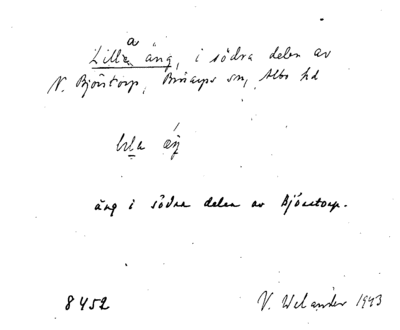 Lilla äng, i södra delen av
N. Björstorp, Brösarps sn, Albo hd
äng i södra delen av Björstorp.
8452 V. Welander 1943